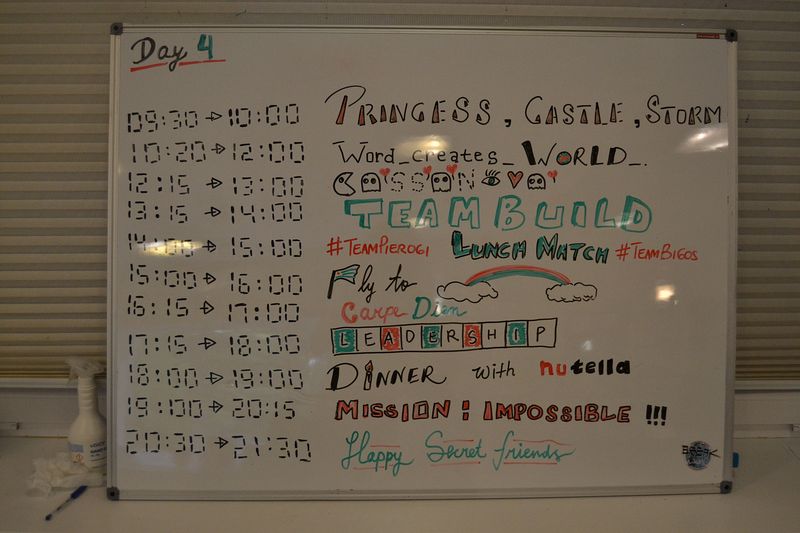 Day 4
09:30 → 10:00 PRINCESS, CASTLE, STORM
10:20 → 12:00 Word_creates_WORLD_.
12:15 → 13:00
13:15 → 14:00 TEAM BUILD
14:00 → 15:00 #TEAMPIEROGI LUNCH MATCH #TEAMBIGOS
15:00 → 16:00 Fly to
16:15 → 17:00 Carpe Diem
17:15 → 18:00 LEADERSHIP
18:00 → 19:00 DINNER with nutella
19:00 → 20:15 MISSION: IMPOSSIBLE!!!
20:30 → 21:30 Happy Secret friends